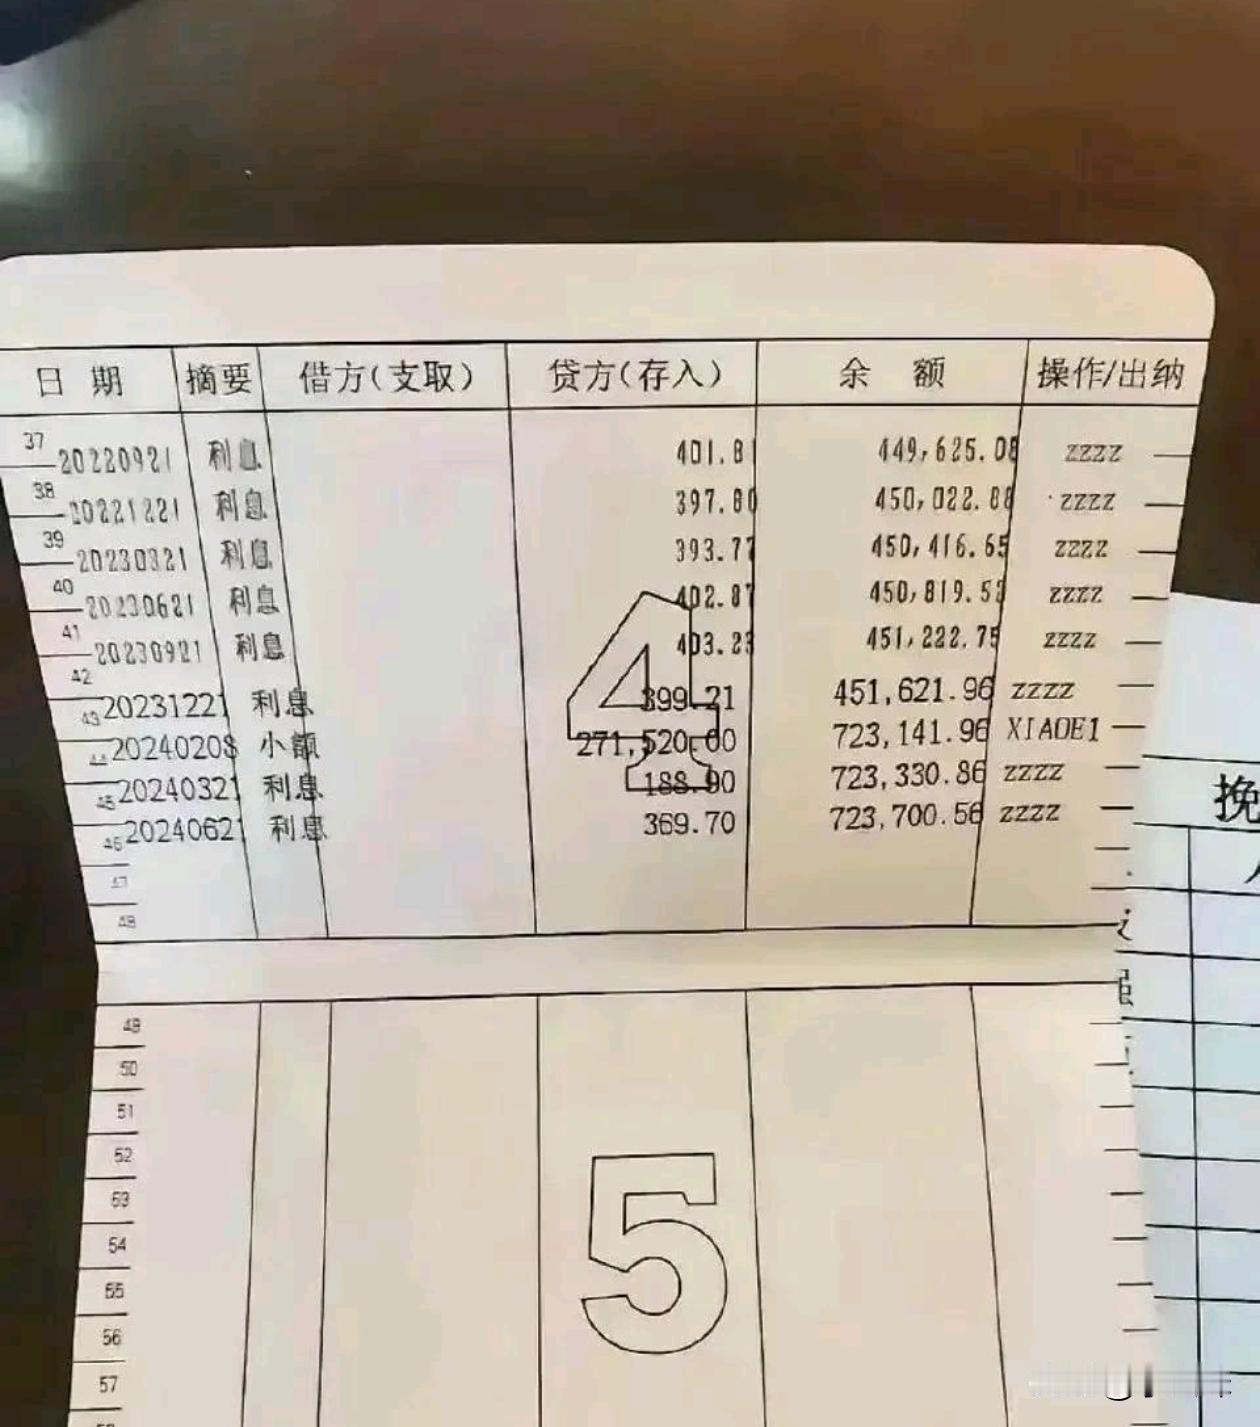 日 期 摘要 借方(支取) 贷方(存入) 余 额 操作/出纳
37 20220921 利息 401.81 449,625.08 ZZZZ
38 20221221 利息 397.80 450,022.88 ZZZZ
39 20230321 利息 393.77 450,416.65 ZZZZ
40 20230621 利息 402.87 450,819.52 ZZZZ
41 20230921 利息 403.23 451,222.75 ZZZZ
42 20231221 利息 399.21 451,621.96 ZZZZ
43 20240208 小额 271,520.00 723,141.96 XIAOE1
44 20240321 利息 188.90 723,330.86 ZZZZ
45 20240621 利息 369.70 723,700.56 ZZZZ
46
47
48
4
挽
49
50
51
52
53
54
55
56
57
5